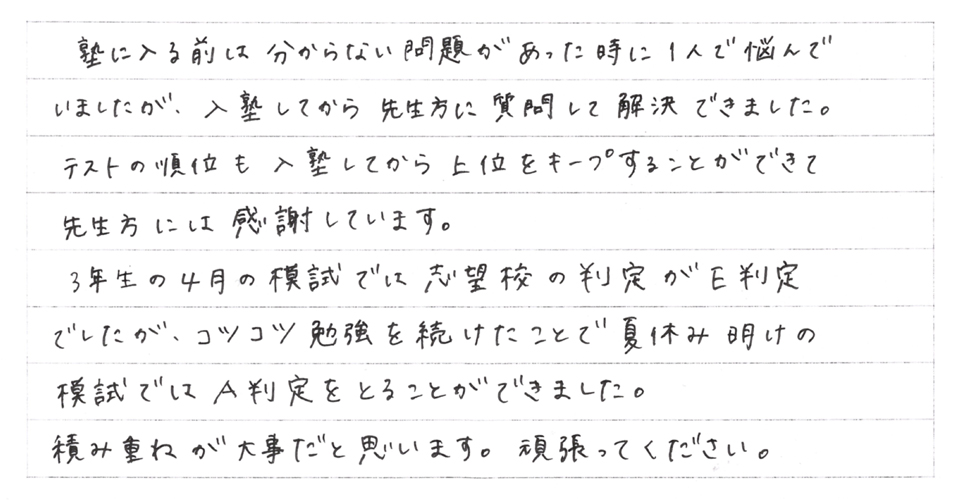 塾に入る前は分からない問題があった時に1人で悩んで
いましたが、入塾してから先生方に質問して解決できました。
テストの順位も入塾してから上位をキープすることができて
先生方には感謝しています。
3年生の4月の模試では志望校の判定がE判定
でしたが、コツコツ勉強を続けたことで夏休み明けの
模試ではA判定をとることができました。
積み重ねが大事だと思います。頑張ってください。